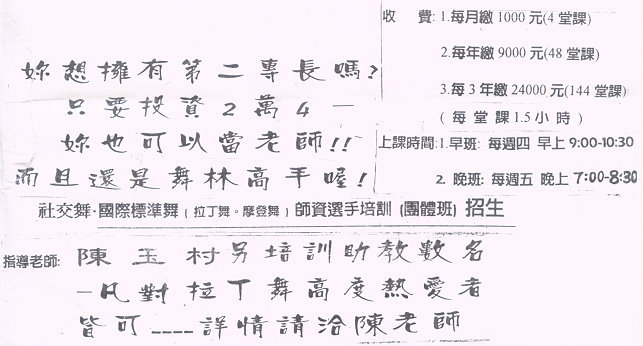 妳想擁有第二專長嗎?
只要投資2萬4—
妳也可以當老師!!
而且還是舞林高手喔!
收 費: 1.每月繳 1000 元(4 堂課)
2.每年繳 9000 元(48 堂課)
3.每 3 年繳 24000 元(144 堂課)
( 每 堂 課 1.5 小 時 )
上課時間:1.早班: 每週四 早上 9:00-10:30
2. 晚班: 每週五 晚上 7:00-8:30
社交舞·國際標準舞 ( 拉丁舞。摩登舞 ) 師資選手培訓 (團體班) 招生
指導老師: 陳玉村另培訓助教數名
—凡對拉丁舞高度熱愛者
皆可----詳情請洽陳老師